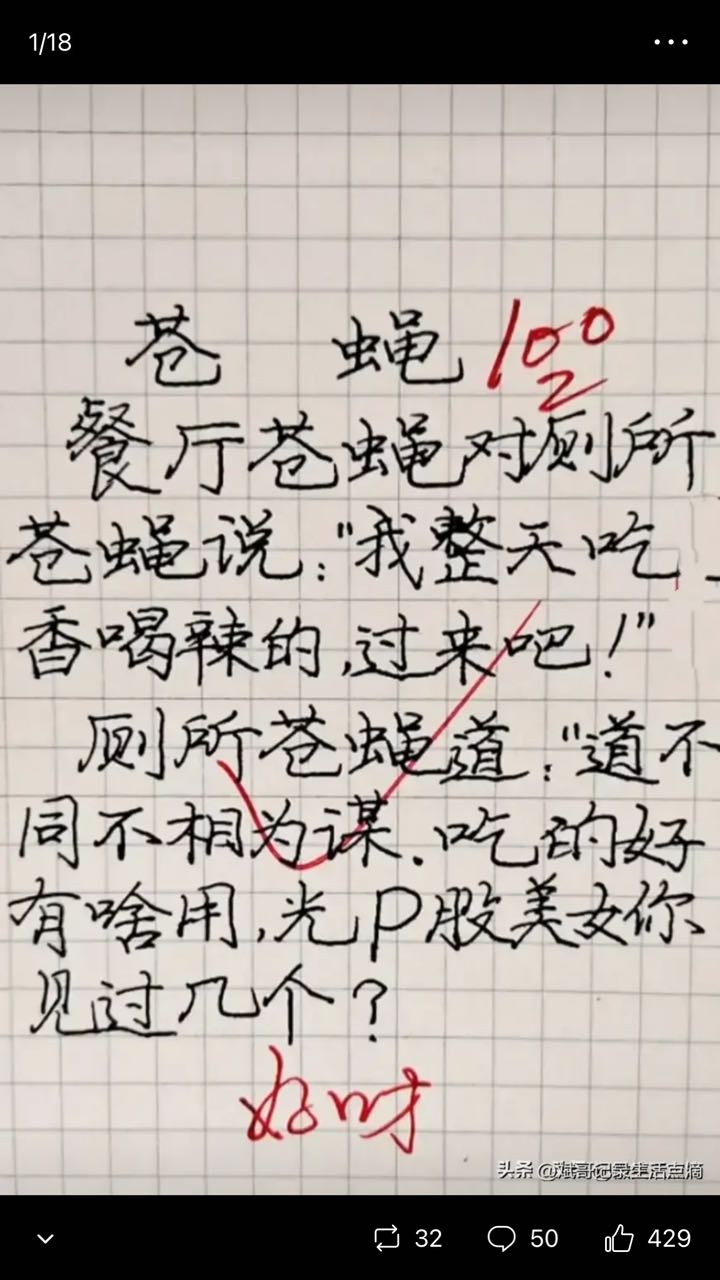 1/18
苍 蝇 100
餐厅苍蝇对厕所
苍蝇说:"我整天吃
香喝辣的,过来吧!"
厕所苍蝇道:"道不
同不相为谋.吃的好
有啥用,光P股美女你
见过几个?
好呀
头条 @斌哥记录生活点滴
32 50 429